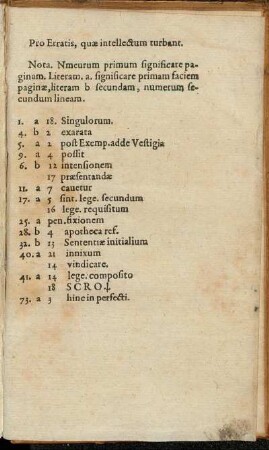 Pro Erratis, quæ intellectum turbant.
Nota. Nmeurum primum significare pa-
ginam. Literam. a. significare primam faciem
paginæ, literam b secundam, numerum se-
cundum lineam.
1. a 18. Singulorum.
4. b 2 exarata
5. a 2 post Exemp. adde Vestigia
9. a 4 possit
6. b 12 intensionem
17 præsentandæ
11. a 7 cavetur
17. a 5 sint. lege. secundum
16 lege. requisitum
25. a pen. fixionem
28. b 4 apotheca ref.
32. b 13 Sententiæ initialium
40. a 21 innixum
14 vindicare.
41. a 14 lege. composito
18 SCRO
73. a 3 hine in perfecti.